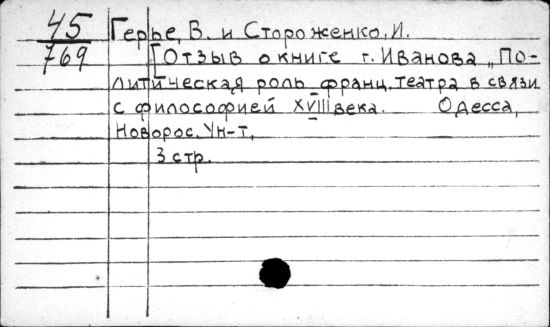 45
769
Герье, В. и Стороженко, И.
[Отзыв о книге г. Иванова „По-
литическая роль франц. театра в связи
с философией XVIII века. Одесса,
Новорос. Ун-т,
3 стр.